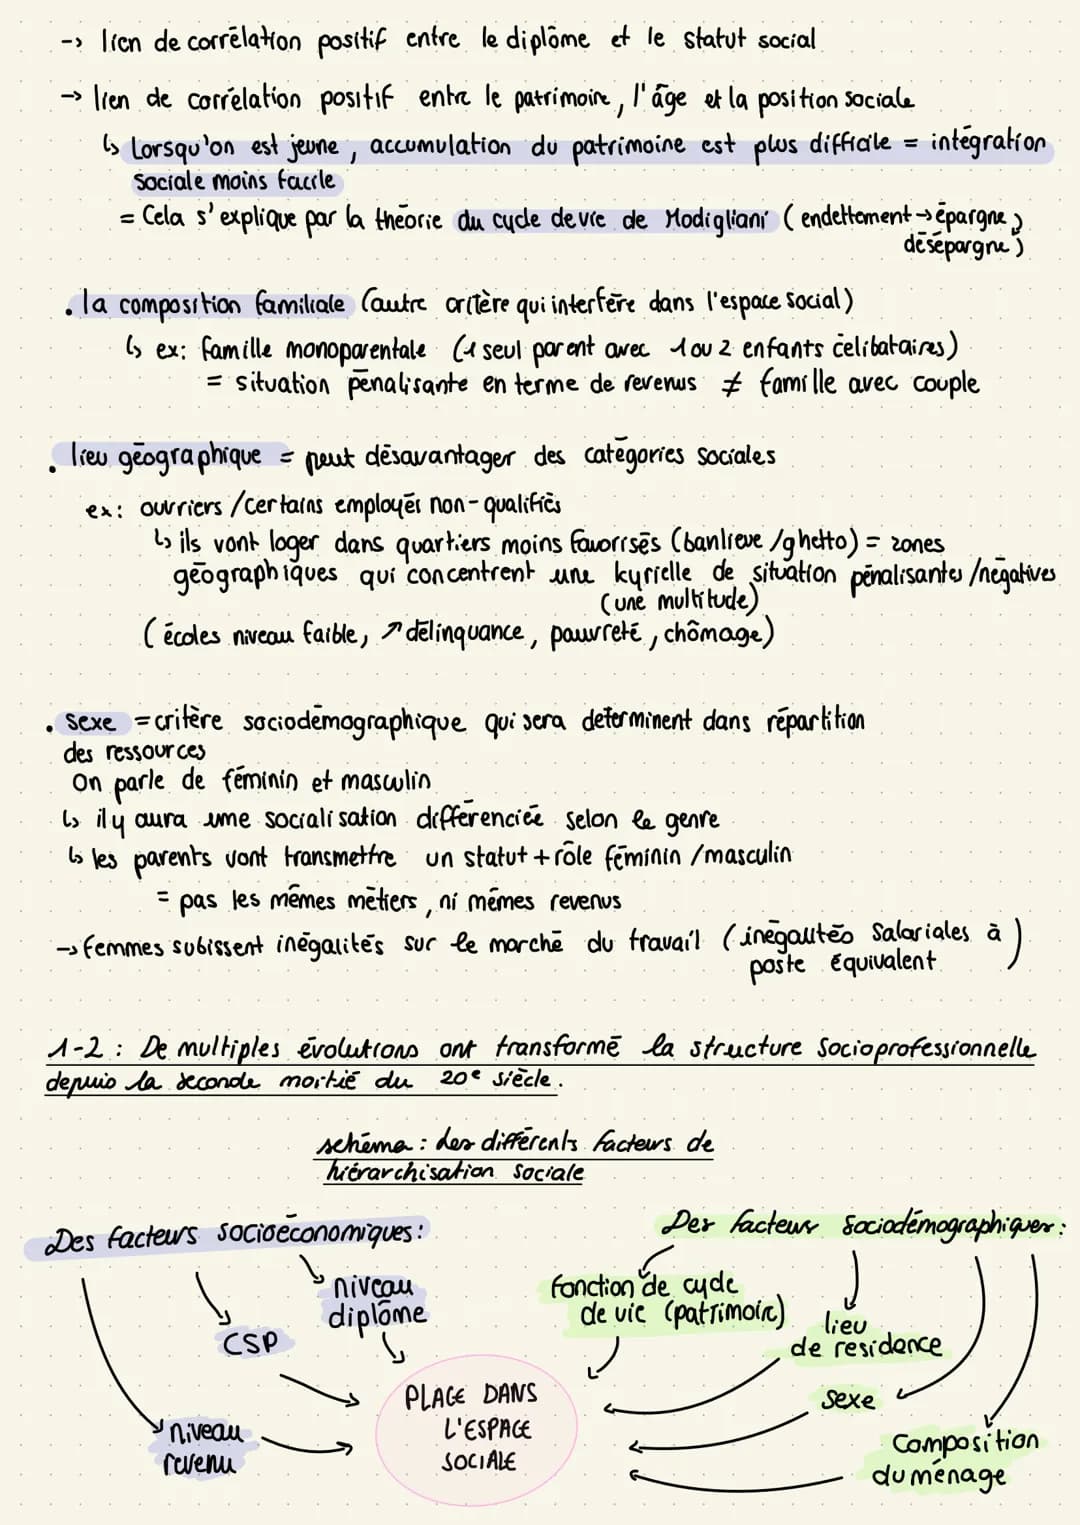 -> lien de corrélation positif entre le diplôme et le statut social
-> lien de corrélation positif entre le patrimoine, l'âge et la position sociale
↳ Lorsqu'on est jeune, accumulation du patrimoine est plus difficile = intégration
sociale moins facile
= Cela s'explique par la théorie du cycle de vie de Modigliani (endettement → épargne
désépargne)
. la composition familiale (autre critère qui interfère dans l'espace social)
↳ ex: famille monoparentale (1 seul parent avec 1 ou 2 enfants célibataires)
= situation pénalisante en terme de revenus ≠ famille avec couple
. lieu géographique = peut désavantager des catégories sociales
ex: ouvriers / certains employés non-qualifiés
↳ ils vont loger dans quartiers moins favorisés (banlieue / ghetto) = zones
géographiques qui concentrent une kyrielle de situation pénalisantes / négatives
(une multitude)
(écoles niveau faible, ↗ délinquance, pauvreté, chômage)
. sexe = critère sociodémographique qui sera determinent dans répartition
des ressources
On parle de féminin et masculin
↳ il y aura une socialisation différenciée selon le genre
↳ les parents vont transmettre un statut + rôle féminin / masculin
= pas les mêmes métiers, ni mêmes revenus
-> femmes subissent inégalités sur le marché du travail (inégalités salariales à
poste équivalent)
1-2 : De multiples évolutions ont transformé la structure socioprofessionnelle
depuis la seconde moitié du 20e siècle.
schéma : des différents facteurs de
hiérarchisation sociale
Des facteurs socioéconomiques :
Des facteurs sociodémographiques :
niveau
diplôme
fonction de cycle
de vie (patrimoine)
CSP
lieu
de residence
PLACE DANS
L'ESPACE
SOCIALE
sexe
niveau
revenu
Composition
du ménage